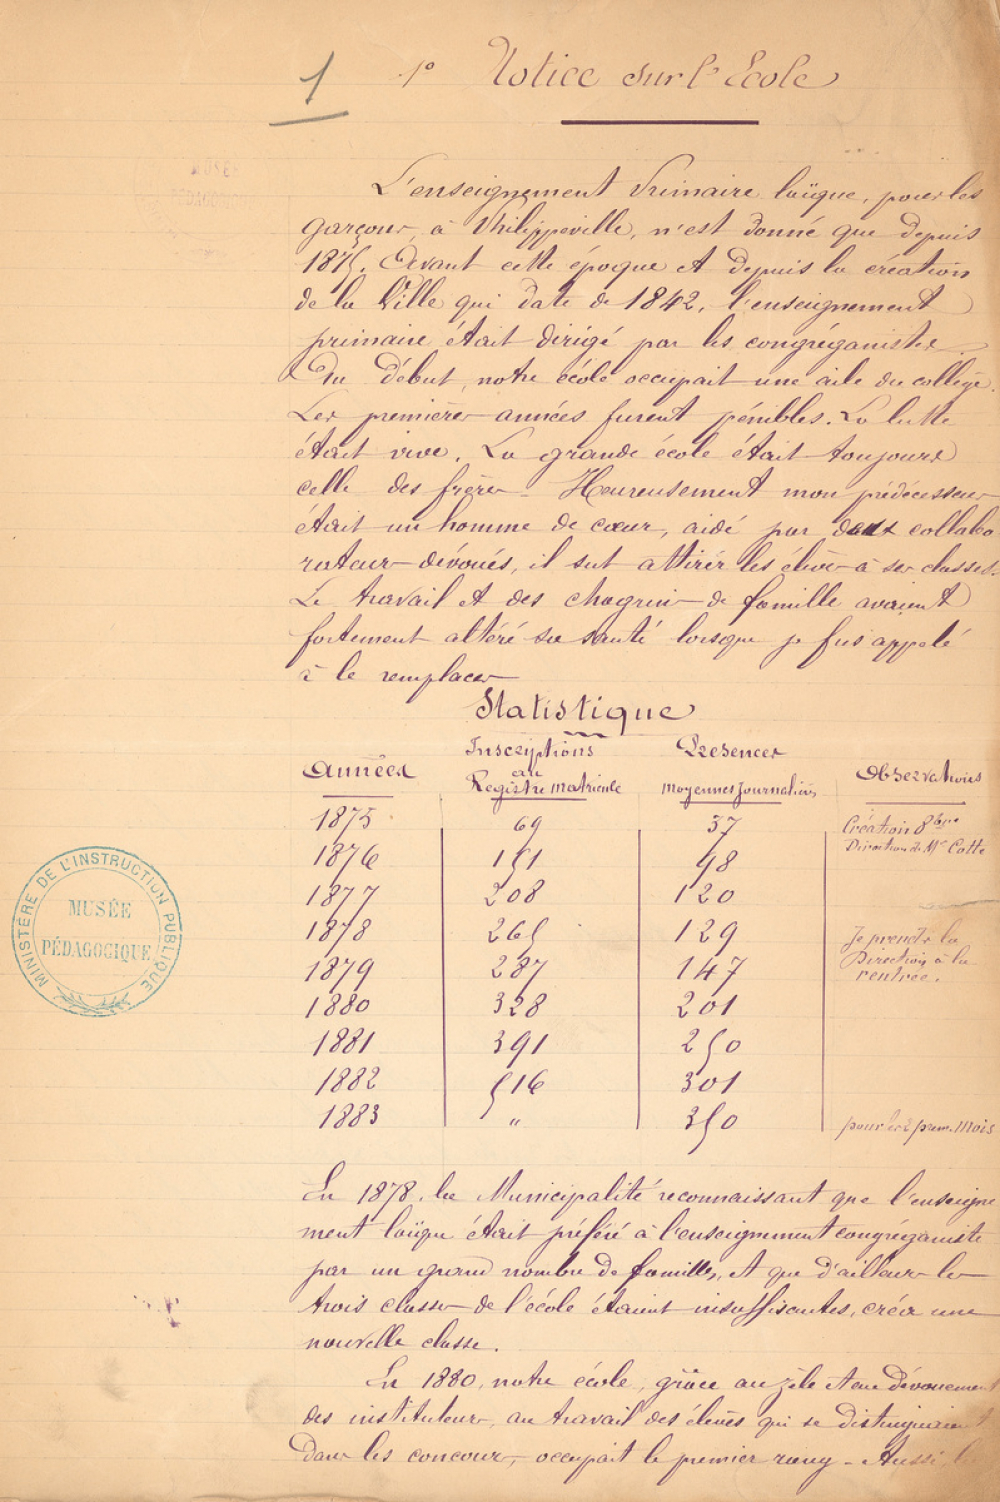 1
1° Notice sur l'Ecole
L'enseignement Primaire laïque, pour les
garçons, à Philippeville, n'est donné que depuis
1875. Avant cette époque et depuis la création
de la Ville qui date de 1842, l'enseignement
primaire était dirigé par les congréganistes.
Au début, notre école occupait une aile du collège.
Les premières années furent pénibles. La lutte
était vive. La grande école était toujours
celle des frères. Heureusement mon prédécesseur
était un homme de cœur, aidé par deux collabo
rateurs dévoués, il sut attirer les élèves à ses classes.
Le travail et des chagrins de famille avaient
fortement altéré sa santé lorsque je fus appelé
à le remplacer
Statistique
Années Inscriptions au Registre matricule Présences moyennes journalières Observations
1875 69 37 Création 8bre
1876 151 98 Direction de Mr Cotte
1877 208 120
1878 265 129 Je prends la
1879 287 147 Direction à la rentrée.
1880 328 201
1881 391 250
1882 516 301
1883 " 350 pour les 2 prem. mois
En 1878, la Municipalité reconnaissant que l'enseigne
ment laïque était préféré à l'enseignement congréganiste
par un grand nombre de familles, et que d'ailleurs les
trois classes de l'école étaient insuffisantes, créa une
nouvelle classe.
En 1880, notre école, grâce au zèle et au dévouement
des instituteurs, au travail des élèves qui se distinguaient
dans les concours, occupait le premier rang. Aussi
MINISTÈRE DE L'INSTRUCTION PUBLIQUE
MUSÉE
PÉDAGOGIQUE